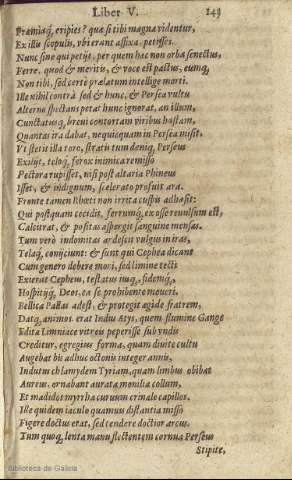 Liber V. 149
Præmiaq́; eripies? quæ si tibi magna videntur,
Ex illis scopulis, vbi erant affixa, petisses.
Nunc sine qui petijt, per quem hæc non orba senectus,
Ferre, quod & meritis, & voce est pactus, eumq́;
Non tibi, sed certæ prælatum intellige morti.
Ille nihil contrà sed & hunc, & Persea vultu
Alterno spectans petat hunc ignorat, an illum,
Cunctatusq́; breui contortam viribus hastam,
Quantas ira dabat, nequicquam in Persea misit.
Vt stetit illa toro, stratis tum deniq; Perseus
Exilijt, teloq́; ferox inimica remisso
Pectora rupisset, nisi post altaria Phineus
Isset, & indignum, scelerato profuit ara.
Fronte tamen Rhœti non irrita cuspis adhæsit:
Qui postquam cecidit, ferrumq́; ex osse reuulsum est,
Calcitrat, & positas aspergit sanguine mensas.
Tum verò indomitas ardescit vulgus in iras,
Telaq́; conijciunt: & sunt qui Cephea dicant
Cum genero debere mori, sed limine tecti
Exierat Cepheus, testatus iusq́; fidemq́;
Hospitijq́; Deos, ea se prohibente moueri.
Bellica Pallas adest, & protegit ægide fratrem,
Datq́; animos. erat Indus Atys, quem flumine Gange
Edita Limniace vitreis peperisse sub vndis
Creditur, egregius forma, quam diuite cultu
Augebat bis adhuc octonis integer annis,
Indutus chlamydem Tyriam, quam limbus obibat
Aureus. ornabant aurata monilia collum,
Et madidos myrrha curuum crinale capillos.
Ille quidem iaculo quamuis distantia misso
Figere doctus erat, sed tendere doctior arcus.
Tum quoq; lenta manu flectentem cornua Perseus
Stipite,
Biblioteca de Galicia